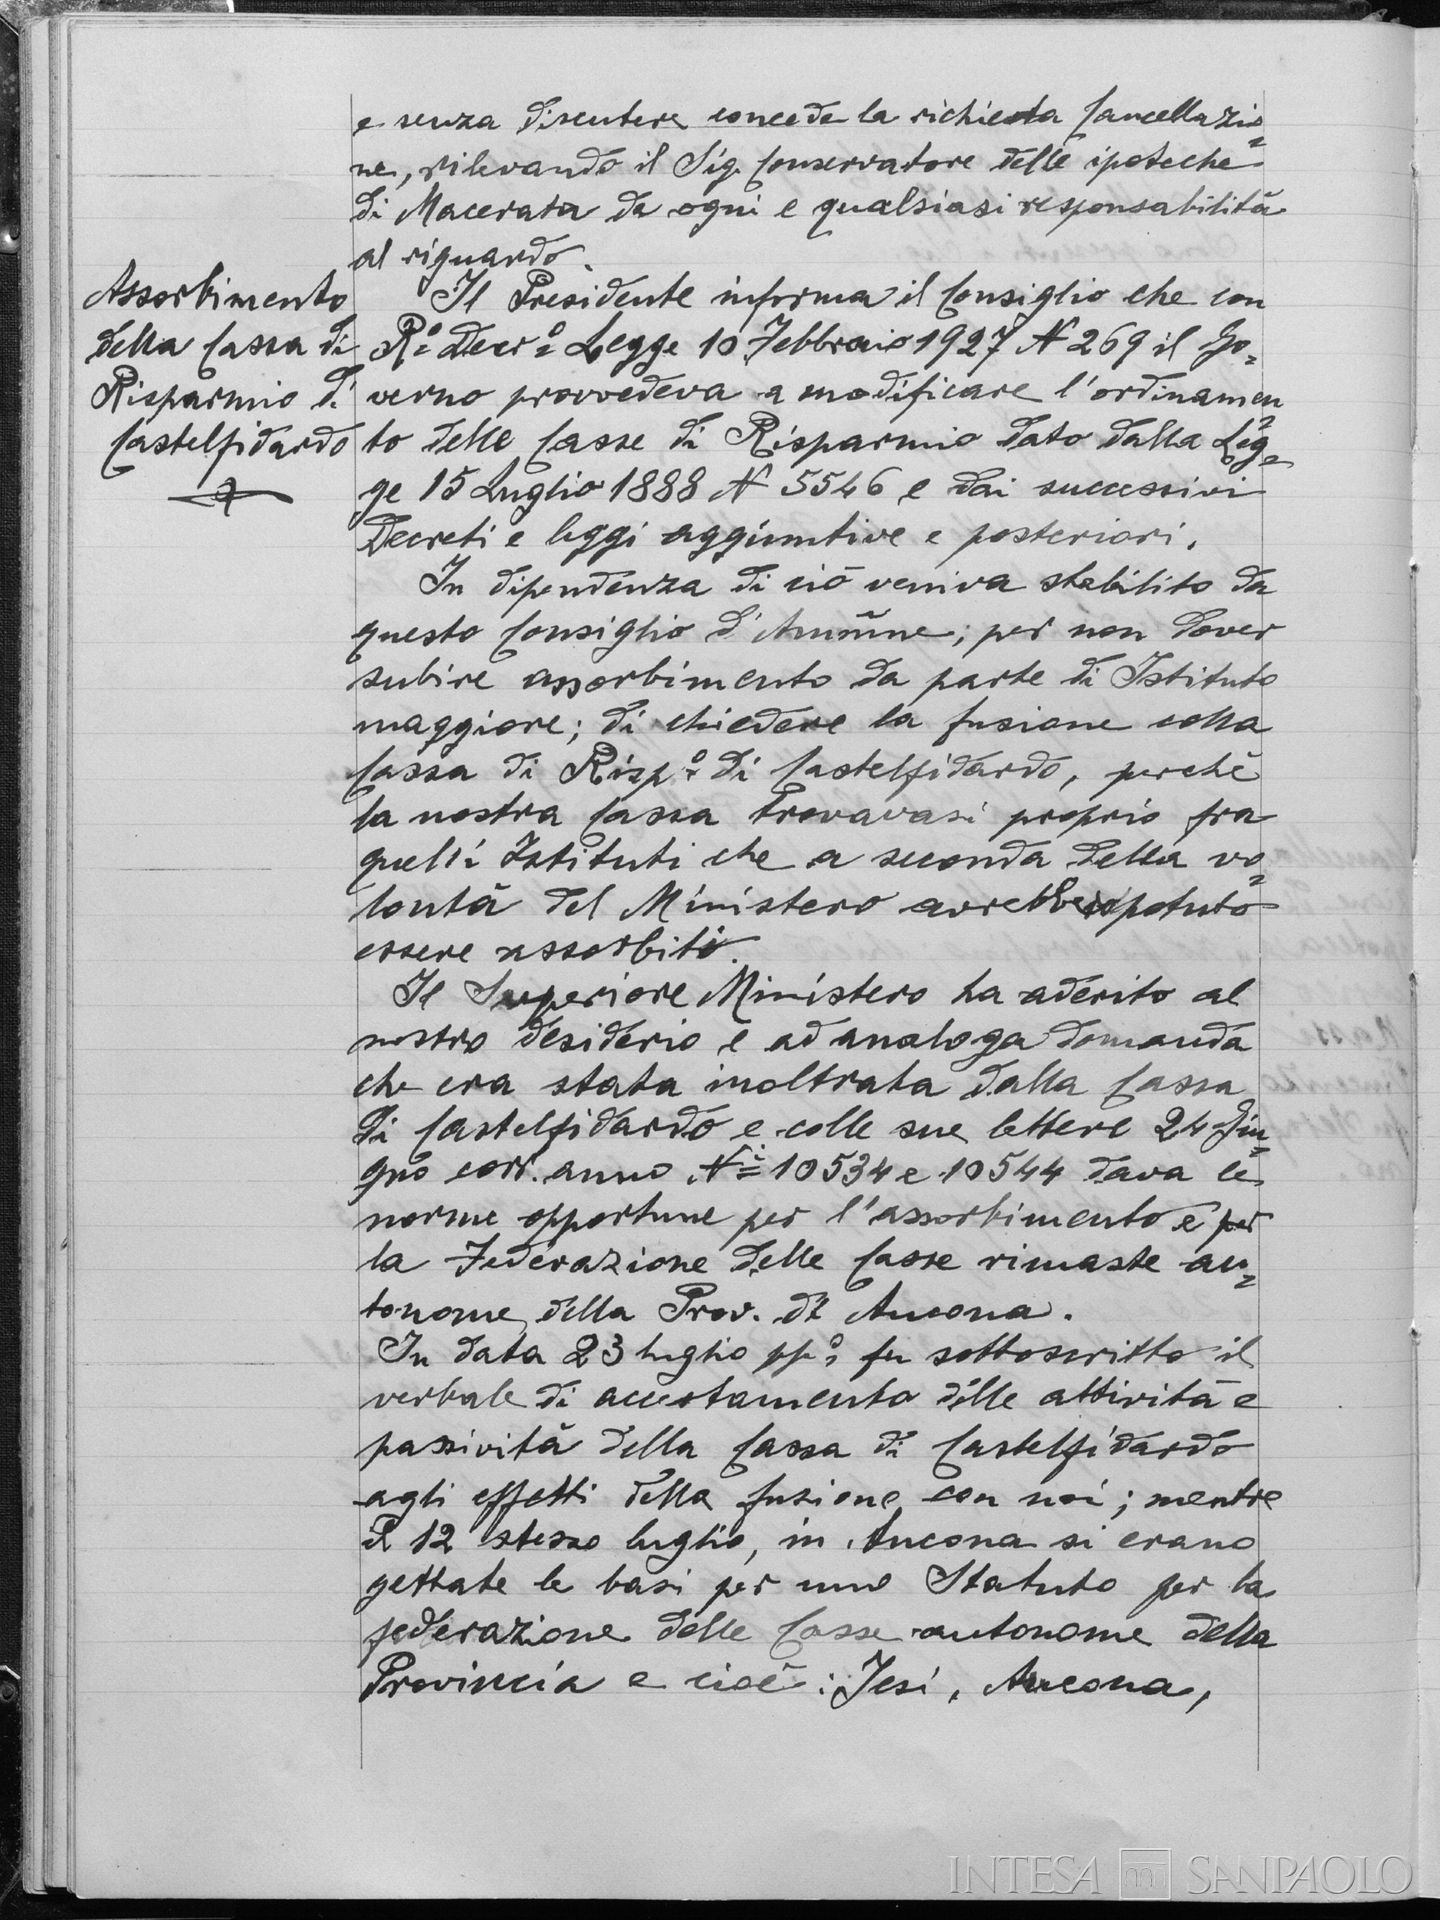 e senza discutere concede la richiesta Cancellazio=
ne, rilevando il Sig. Conservatore delle ipoteche
di Macerata da ogni e qualsiasi responsabilità
al riguardo.
Assorbimento
della Cassa di
Risparmio di
Castelfidardo
Il Presidente informa il Consiglio che con
R.º Decrº Legge 10 Febbraio 1927 N 269 il Go=
verno provvedeva a modificare l'ordinamen=
to delle Casse di Risparmio dato dalla Leg=
ge 15 Luglio 1888 N 5546 e dai successivi
Decreti e leggi aggiuntive e posteriori.
In dipendenza di ciò veniva stabilito da
questo Consiglio d'Amm̃ne; per non dover
subire assorbimento da parte di Istituto
maggiore; di chiedere la fusione colla
Cassa di Rispº di Castelfidardo, perchè
la nostra Cassa trovavasi proprio fra
quelli Istituti che a seconda della vo=
lontà del Ministero avrebbe potuto
essere assorbiti.
Il Superiore Ministero ha aderito al
nostro desiderio e ad analoga domanda
che era stata inoltrata dalla Cassa
di Castelfidardo e colle sue lettere 24 Giu=
gno corr. anno Nⁱ 10534 e 10544 dava le
norme opportune per l'assorbimento e per
la Federazione delle Casse rimaste au=
tonome della Prov. di Ancona.
In data 23 luglio pp.º fu sottoscritto il
verbale di accertamento delle attività e
passività della Cassa di Castelfidardo
agli effetti della fusione con noi; mentre
il 12 stesso luglio, in Ancona si erano
gettate le basi per uno Statuto per la
federazione delle Casse autonome della
Provincia e cioè: Jesi, Ancona,
INTESA SANPAOLO